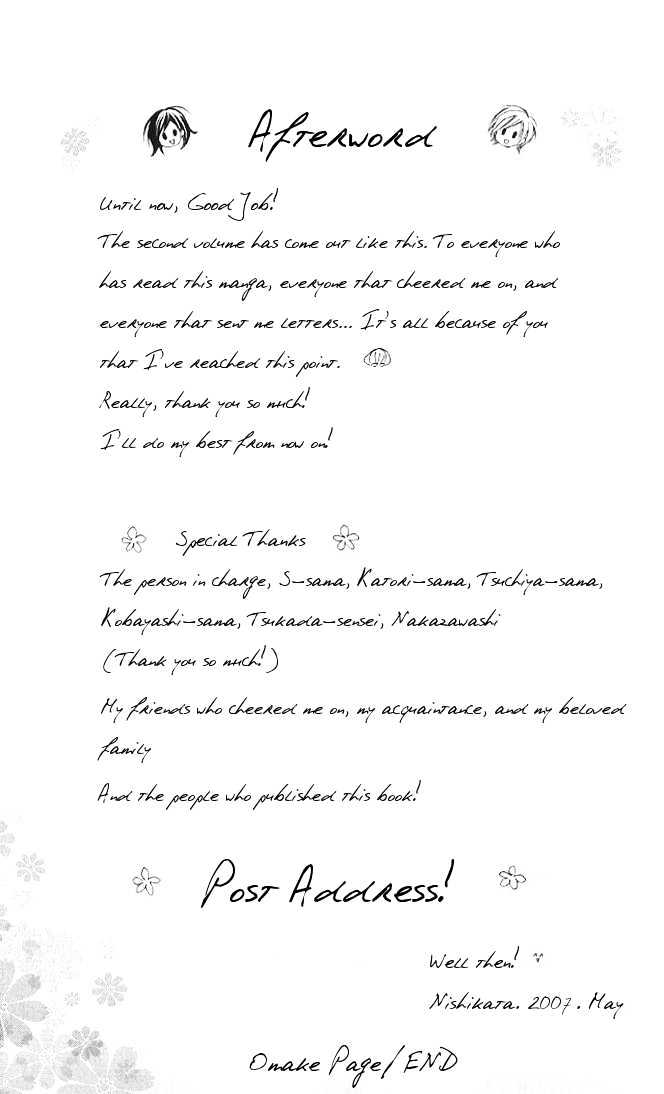 Afterword
Until now, Good Job!
The second volume has come out like this. To everyone who
has read this manga, everyone that cheered me on, and
everyone that sent me letters... It's all because of you
that I've reached this point.
Really, thank you so much!
I'll do my best from now on!
Special Thanks
The person in charge, S-sama, Katori-sama, Tsuchiya-sama,
Kobayashi-sama, Tsukada-sensei, Nakazawashi
(Thank you so much!)
My friends who cheered me on, my acquaintance, and my beloved
family
And the people who published this book!
Post Address!
Well then!
Nishikata. 2007. May
Omake Page/END